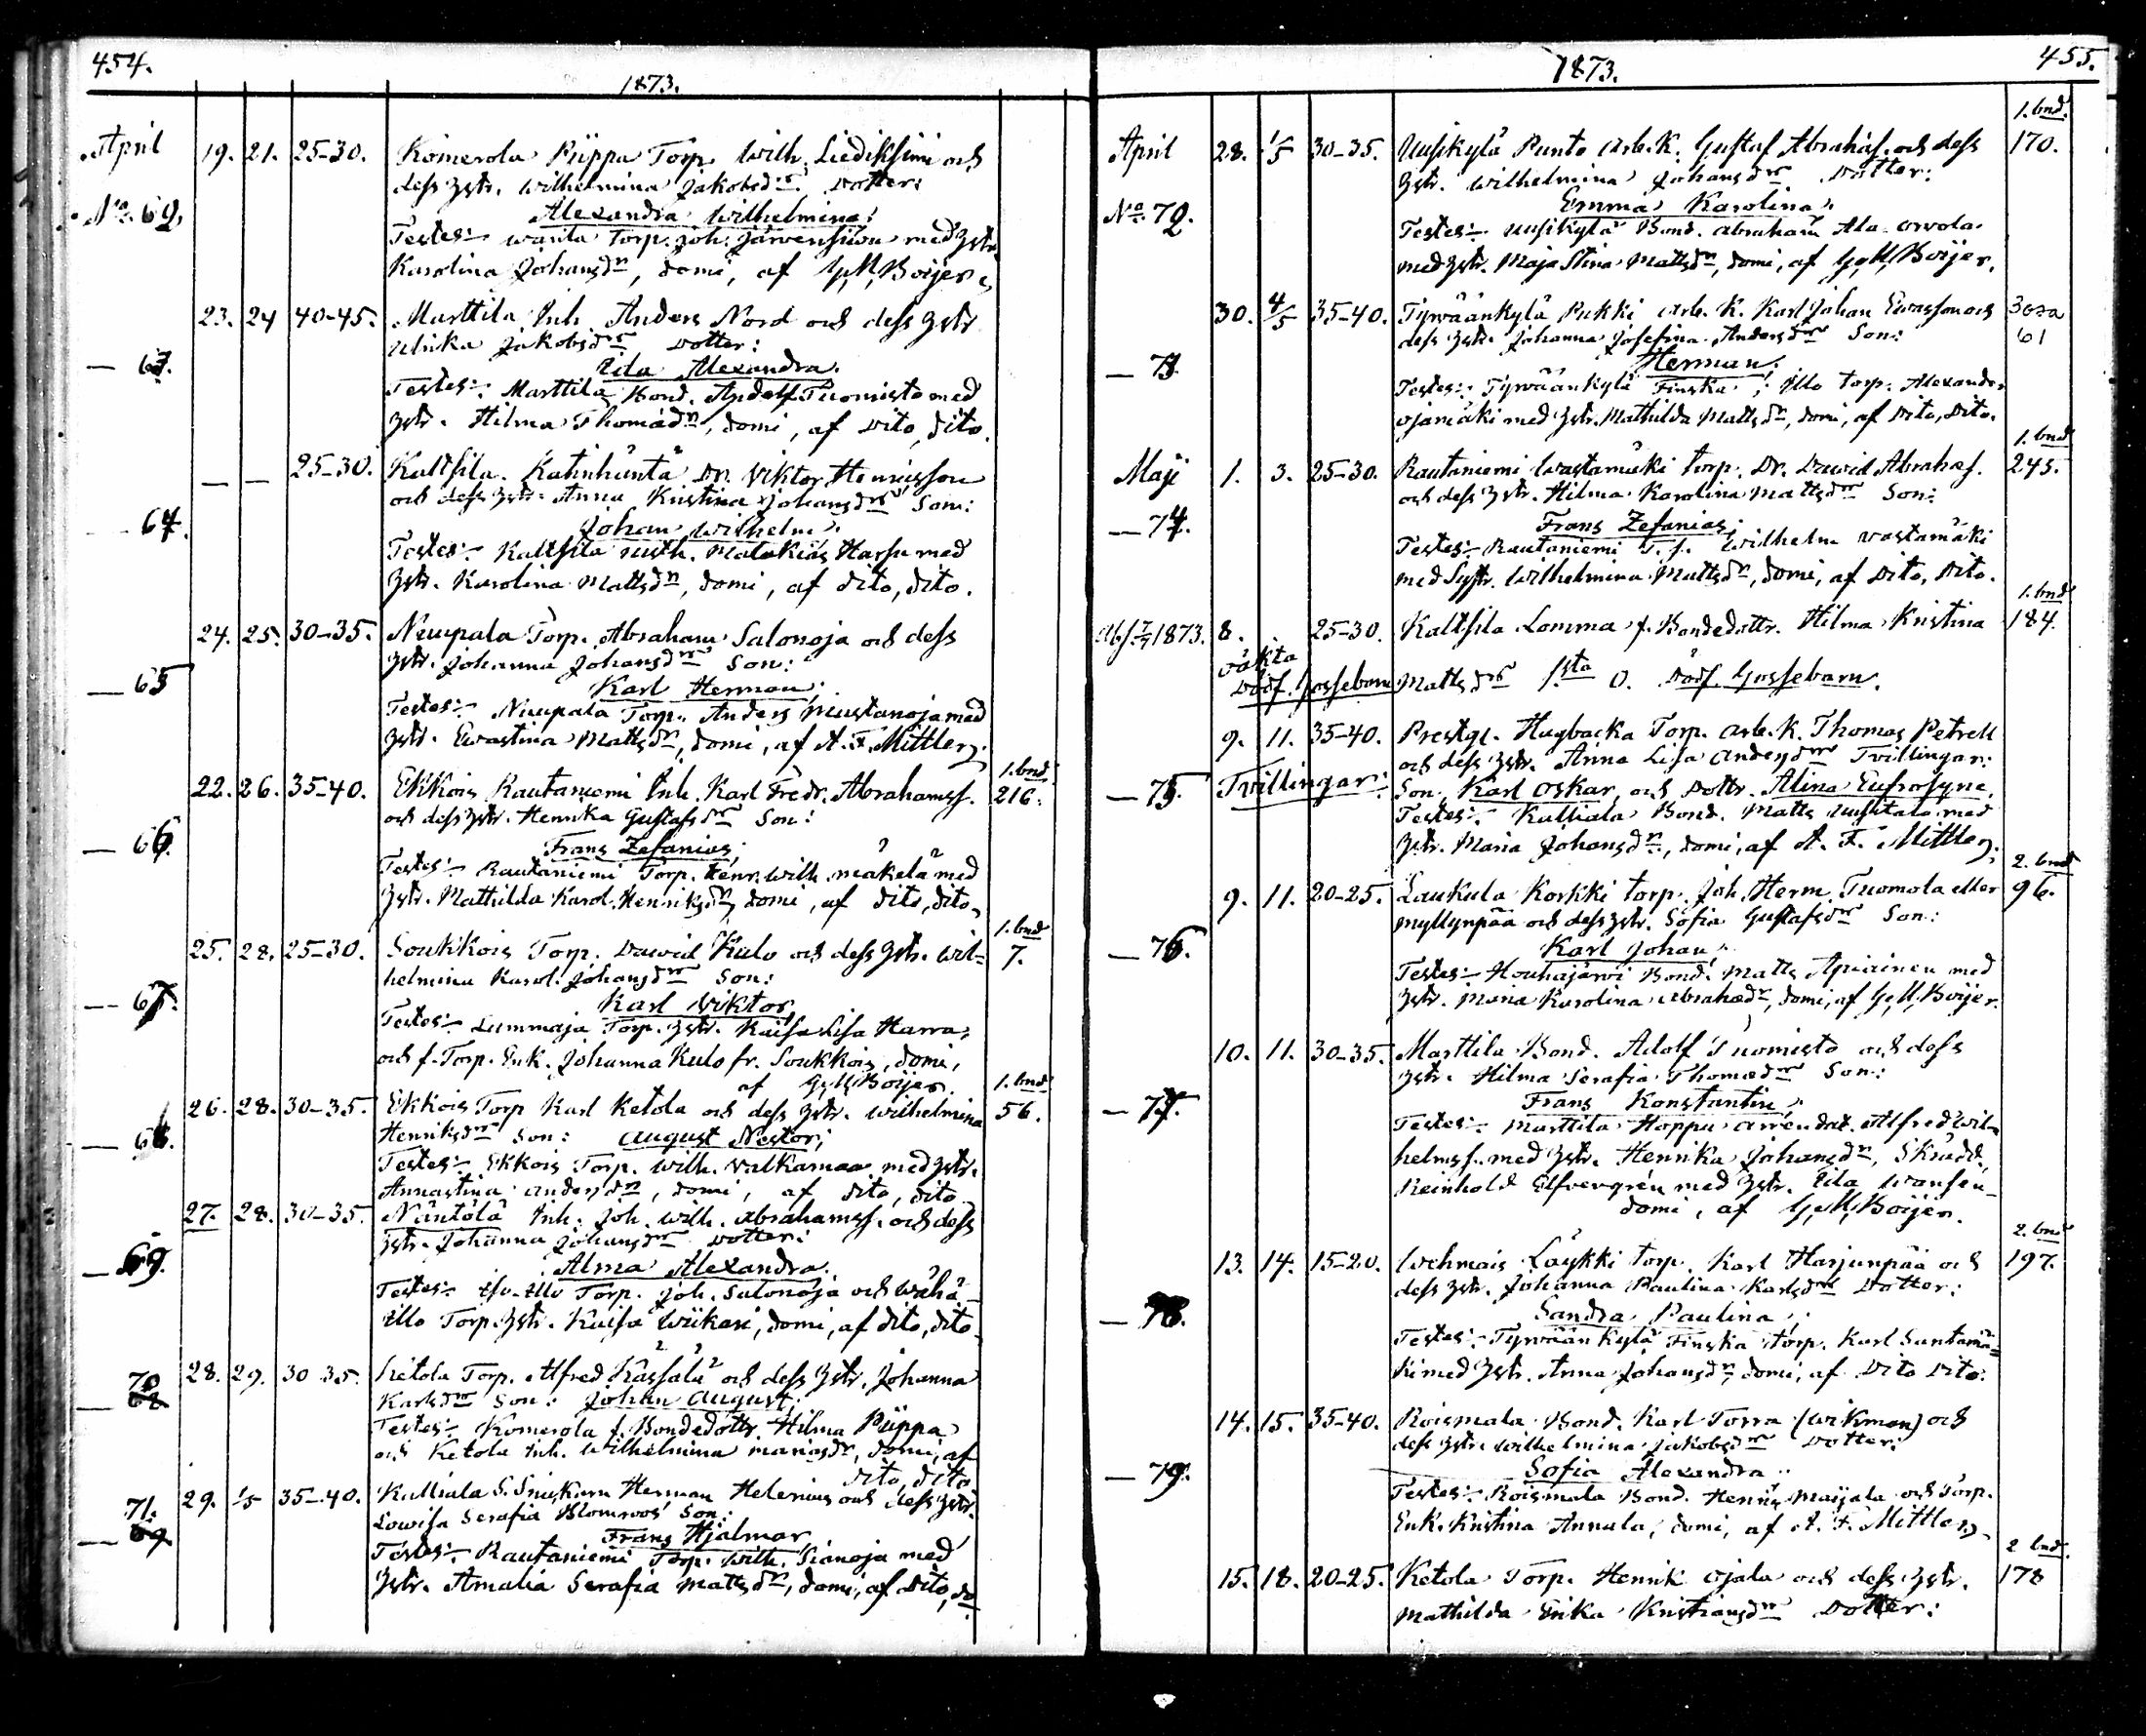 454.
1873.
April 19. 21. 25-30. Komerola Piippa Torp. Wilh. Liediksimi och
dess hstr. Wilhelmina Jakobsdr Dotter:
No. 62. Alexandra Wilhelmina;
Testes:- Warila Torp. Joh. Järvensivu med hstr.
Karolina Johansdn, domi, af G. M. Boijer.
23. 24 40-45. Marttila Inh. Anders Nord och dess hstr
Ulrika Jakobsdr Dotter:
— 63. Eila Alexandra.
Testes:- Marttila Bond. Adolf Tuomisto med
hstr. Hilma Thomadn, domi, af Dito, dito.
— — 25-30. Kaltsila Katinhäntä Dr. Viktor Henriksson
och dess hstr. Anna Kristina Johansdr Son:
— 64. Johan Wilhelm;
Testes:- Kaltsila Malakias Harju med
hstr. Karolina Mattsdn, domi, af dito, dito.
24. 25. 30-35. Nuupala Torp. Abraham Salonoja och dess
hstr. Johanna Johansdr Son:
— 65 Karl Herman;
Testes:- Nuupala Torp. Anders Mustanoja med
hstr. Evastina Mattsdn, domi, af A. F. Mittler.
1. bnd.
22. 26. 35-40. Ekkois Rautaniemi Inh. Karl Fredr. Abrahamss. 216.
och dess hstr. Henrika Gustafsdr Son:
— 66. Frans Zefanias;
Testes:- Rautaniemi Torp. Henr. Wilh. Mäkelä med
hstr. Mathilda Karol. Henriksdn, domi, af dito, dito.
1. bnd
25. 28. 25-30. Soukkois Torp. David Kulo och dess hstr. Wil= 7.
helmina Karol. Johansdr Son:
— 67. Karl Viktor,
Testes:- Lummaja Torp. hstr. Kaisa Lisa Harra,
och f. Torp. Enk. Johanna Kulo fr. Soukkois, domi,
af G. M. Boijer.
1. bnd
26. 28. 30-35. Ekkois Torp Karl Ketola och dess hstr. Wilhelmina 56.
— 68. Henriksdr Son: August Nestor;
Testes:- Ekkois Torp. Wilh. Valkamaa med hstr.
Annastina Andersdn, domi, af dito, dito
27. 28. 30-35. Näntölä Inh. Joh. Wilh. Abrahamss. och dess
hstr. Johanna Johansdr Dotter:
— 69. Alma Alexandra.
Testes:- Illo Torp. Joh. Salonoja och Wähä-
Illo Torp. hstr. Kaisa Wiikari, domi, af dito, dito.
28. 29. 30-35. Ketola Torp. Alfred Kässälä och dess hstr. Johanna
— 70 68 Karlsdr Son: Johan August;
Testes:- Komerola f. Bondedottr. Hilma Piippa
och Ketola Inh. Wilhelmina Mariasdr, domi, af
dito, dito
29. 1/5 35-40. Kalliala S. Snickarn Herman Helenius och dess hstr.
Lowisa Serafia Blomroos Son:
— 71. 69 Frans Hjalmar,
Testes:- Rautaniemi Torp. Wilh. Sianoja med
hstr. Amalia Serafia Mattsdn, domi, af Dito, do.
455.
1873.
1. bnd.
April 28. 1/5 30-35. Uusikylä Punto Arb. K. Gustaf Abrahafs. och dess 170.
hstr. Wilhelmina Johansdr Dotter:
No. 72. Emma Karolina.
Testes:- Uusikylä Bond. Abraham Ala-Orvola
med hstr. Maja Stina Mattsdn, domi, af G. M. Boijer.
30. 4/5 35-40. Tyrväänkylä Pukki Arb. K. Karl Johan Ewasson och
61
dess hstr. Johanna Josefina Andersdr Son:
— 73 Herman;
Testes:- Tyrväänkylä Finska; Illo Torp. Alexander
Ojamäki med hstr. Mathilda Mattsdn, domi, af Dito, Dito.
1. bnd
Maji 1. 3. 25-30. Rautaniemi Wastamäki Torp. Dr. Dawid Abrahas. 245.
och dess hstr. Hilma Karolina Mattsdr Son:
— 74. Frans Zefanias;
Testes:- Rautaniemi T. f. Wilhelm Wastamäki
med Systr. Wilhelmina Mattsdn, domi, af Dito, Dito.
1. bnd
Abs. 7/7 1873. 8. 25-30. Kaltsila Lomma f. Bondedottr. Hilma Kristina 184.
oäkta
Dödf. Gossebarn Mattsdr 1sta O. Dödf. Gossebarn.
9. 11. 35-40. Prestgl. Hugbacka Torp. Arb. K. Thomas Petrell
och dess hstr. Anna Lisa Andersdr Tvillingar:
— 75. Tvillingar: Son, Karl Oskar, och Dottr. Alina Eufrosyne.
Testes:- Kalliala Bond. Matts Uusitalo med
hstr. Maria Johansdn, domi, af A. F. Mittler.
2. bnd
9. 11. 20-25. Laukula Korkki Torp. Joh. Herm. Tuomola eller 96.
Myllynpää och dess hstr. Sofia Gustafsdr Son:
— 76. Karl Johan;
Testes:- Houhajärvi Bond. Matts Apiainen med
hstr. Maria Karolina Abrahadn, domi, af G. M. Boijer.
10. 11. 30-35. Marttila Bond. Adolf Tuomisto och dess
hstr. Hilma Serafia Thomadr Son:
— 77. Frans Konstantin;
Testes:- Marttila Hoppu Arrendat. Alfred Wil-
helmss. med hstr. Henrika Johansdn, Skrädd.
Reinhold Elfvengrén med hstr. Eila Wansén
domi, af G. M. Boijer.
2. bnd
13. 14. 15-20. Wehmais Läykki Torp. Karl Harjunpää och 197.
dess hstr. Johanna Paulina Karlsdr Dotter:
— 78. Sandra Paulina;
Testes:- Tyrväänkylä Finska Torp. Karl Santamä=
ki med hstr. Anna Johansdn, domi, af Dito Dito.
14. 15. 35-40. Roismala Bond. Karl Torra (Wikman) och
dess hstr. Wilhelmina Jakobsdr Dotter:
— 79. Sofia Alexandra.
Testes:- Roismala Bond. Henrik Maijala och Torp.
Enk. Kristina Annala, domi, af A. F. Mittler.
2 bnd.
15. 18. 20-25. Ketola Torp. Henrik Ojala och dess hstr. 178
Mathilda Erika Kristiansdr Dotter: